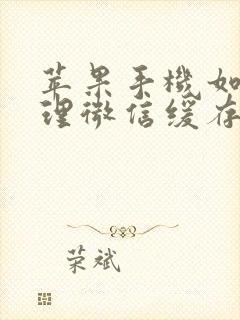 苹果手機如
理微信缓存
荣斌